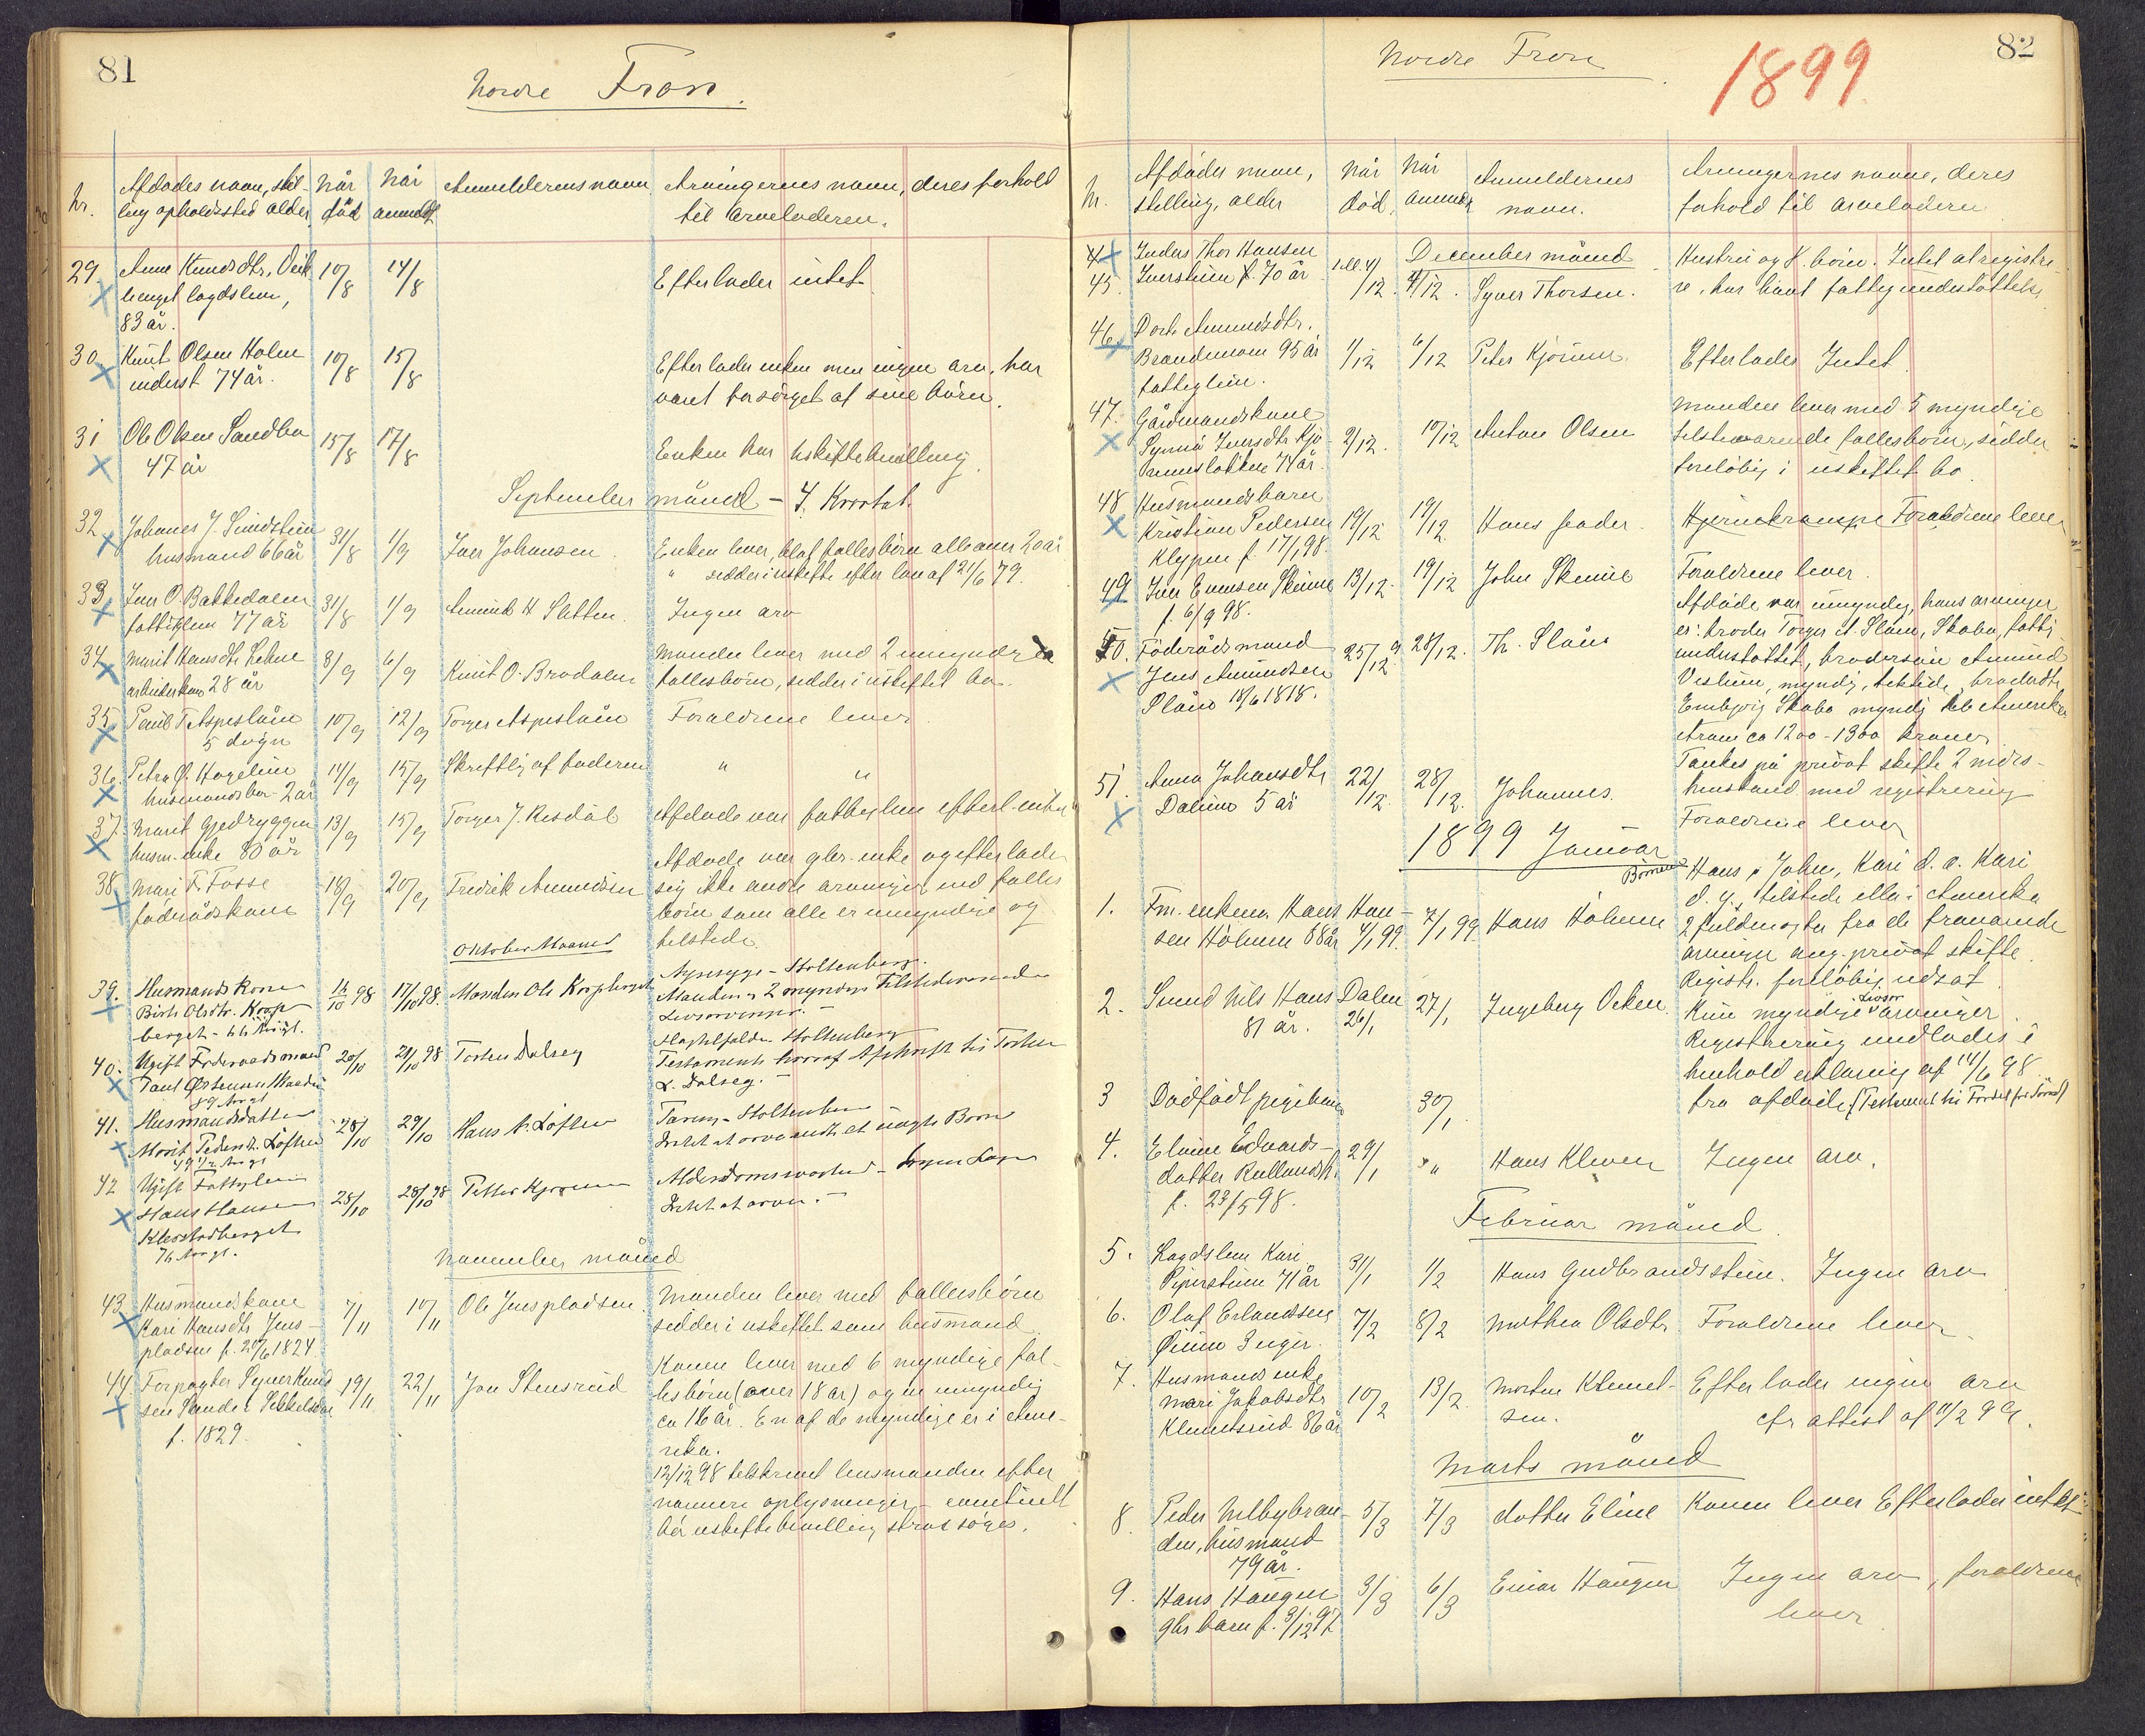 81
Nordre Fron.
Nr.
Afdødes navn, stil-
ling opholdssted alder
når
død
når
anmeldt
Anmelderens navn
Arvingernes navn, deres forhold
til arveladeren.
29
Anne Knudsdtr.
lægdslem,
83 år.
10/8
14/8
Efterlader intet
30
Knut Olsen Holm
inderst 74 år.
10/8
15/8
Efterlader enken men ingen arv, har
været forsørget af sine børn.
31
Ole Olsen Sandbo
47 år
15/8
17/8
Enken har uskiftebevilling.
September måned –
32
Johanes J.
husmand 66 år
31/8
1/9
Iver Johansen
Enken lever, fællesbørn alle over 20 år
" sidder i uskifte efter lov af 21/6 79
33
Iver O. Bakkedalen
fattiglem 77 år
31/8
1/9
Amund H Sletten
Ingen arv
34
Marit Hansdtr
28 år
3/9
6/9
Knut O. Brodalen
Manden lever med 2 umyndige
fællesbørn, sidder i uskiftet bo.
35
Paul T Aspesláen
5 døgn
10/9
12/9
Torger Aspesláen
Forældrene lever
36
Petra O. Hagelien
husmandsbarn 2 år
14/9
15/9
Skriftlig af faderen
" "
37
Marit Gjedryggen
husm. enke 80 år
13/9
15/9
Torger J.
Afdøde var fattiglem efterl. intet
38
Mari F. Fosse
føderådskone
18/9
20/9
Fredrik Amundsen
Afdøde var gbr. enke og efterlader
sig ikke andre arvinger end fælles
børn som alle er umyndige og
tilstede.
Oktober Maaned
39.
Husmandskone
Birte Olsdtr.
berget – 66 Aar gl.
14/10 98
17/10 98.
Manden Ole
Nyresyge – Stoltenberg.
Manden & 2 myndige Tilstedeværende
Livsarvinger. –
40.
Ugift Føderaadsmand
Paul
89 Aar gl
20/10
21/10 98
Torsten Dalseg
Stoltenberg
Testament hvoraf Afskrift hos Torsten
Dalseg. –
41.
Husmandsdatter
Marit Pedersdtr. Løften
49 1/2 Aar gl
28/10
29/10
Hans P. Løften
Stoltenberg
Intet at arve Børn
42
Ugift Fattiglem
Hans Hansen
Kleivstadberget
76 Aar gl.
25/10
28/10 98
Petter Kjørum
Alderdomssvaghed – Ingen Læge
Intet at arve. –
November måned
43
Husmandskone
Kari Hansdtr Jens-
pladsen f. 20/6 1824
7/11
10/11
Ole Jenspladsen.
Manden lever med fællesbørn
sidder i uskiftet som husmand
44
Forpagter Syver Knud
sen Sande i
f. 1829.
19/11
22/11
Jon Stensrud
Konen lever med 6 myndige fæl-
lesbørn (over 18 år) og en umyndig
ca 16 år. En af de myndige er i Ame-
rika.
12/12 98 tilskrevet lensmanden efter
nærmere oplysninger, – eventuelt
bør uskiftebevilling strax søges.
Nordre Fron
1899
82
Nr.
Afdødes navn,
stilling, alder
når
død.
når
anmeldt
Anmelderens
navn.
Arvingernes navne, deres
forhold til arveladeren
December måned
45.
Inders Thor Hansen
Iversteien f. 70 år
4/12
4/12.
Syver Thorsen.
Hustru og børn. Intet at registre-
re. har havt fattigunderstøttelse
46
Dorte Amundsdtr.
Brandenvom 95 år
fattiglem.
1/12
6/12
Peter Kjørum.
Efterlader Intet.
47.
Gårdmandskone
Synnø Iversdtr Kjø-
rumsløkken 74 år.
2/12.
10/12
Anton Olsen
Manden lever med 5 myndige
tilstedeværende fællesbørn, sidder
foreløbig i uskiftet bo.
48
Husmandsbarn
Kristian Pedersen
Klyppen f. 17/1 98.
19/12
19/12
Hans fader.
Hjernekrampe Forældrene lever
49
Iver Evensen Skeine
f. 6/9 98.
13/12.
19/12
John Skeine
Forældrene lever.
50.
Føderådsmand
Jens Amundsen
Slåen 18/6 1818.
25/12
28/12.
Th. Slåen
Afdøde var umyndig, hans arvinger
er: broder Torger A. Slåen, Skabo, fattig
understøttet, brodersøn Amund
Veslien, myndig, tilstede, broderdtr
Embjørg Skabo myndig Amerika
Arven ca 1200 – 1300 kroner
Tænkes på privat skifte
med registrering
51.
Anna Johansdtr
Dalum 5 år
22/12.
28/12.
Johannes.
Forældrene lever
1899 Januar
1.
Fm. enkem. Hans Han-
sen Hølmen 88 år
4/1 99.
7/1 99
Hans Hølmen
Børnene Hans, John, Kari d. æ. Kari
d. y., tilstede eller i Amerika
2 fuldmagter fra de fraværende
arvinger ang. privat skifte.
Registr. foreløbig udsat
2.
Smed Nils Hans Dalen
81 år.
26/1
27/1
Ingeborg Veken.
Kun myndige livsarvinger.
Registrering undlades i
henhold erklæring af 14/6 98
fra afdøde (Testament
3
Dødfødt pigebarn
30/1
4.
Eline Edvards-
datter
f. 23/5 98.
29/1
"
Hans Kleven
Ingen arv.
Februar måned
5.
Lægdslem Kari
Piperstuen 71 år
31/1
1/2
Hans Gudbrandsstuen.
Ingen arv
6.
Olaf Erlandsen
Øium 3 uger.
7/2
8/2
Mathea Olsdtr
Forældrene lever
7.
Husmandsenke
Mari Jakobsdtr
Klemetsrud 86 år
10/2
13/2
Morten Klemet-
sen.
Efterlader ingen arv
cfr attest af 11/2 99.
Marts måned
8.
Peder Melbybraa-
den, husmand
79 år.
5/3
7/3
datter Eline
Konen lever Efterlader intet
9.
Hans Haugen
gbr barn f. 3/12 97
3/3
6/3
Einar Haugen
Ingen arv, forældrene
lever